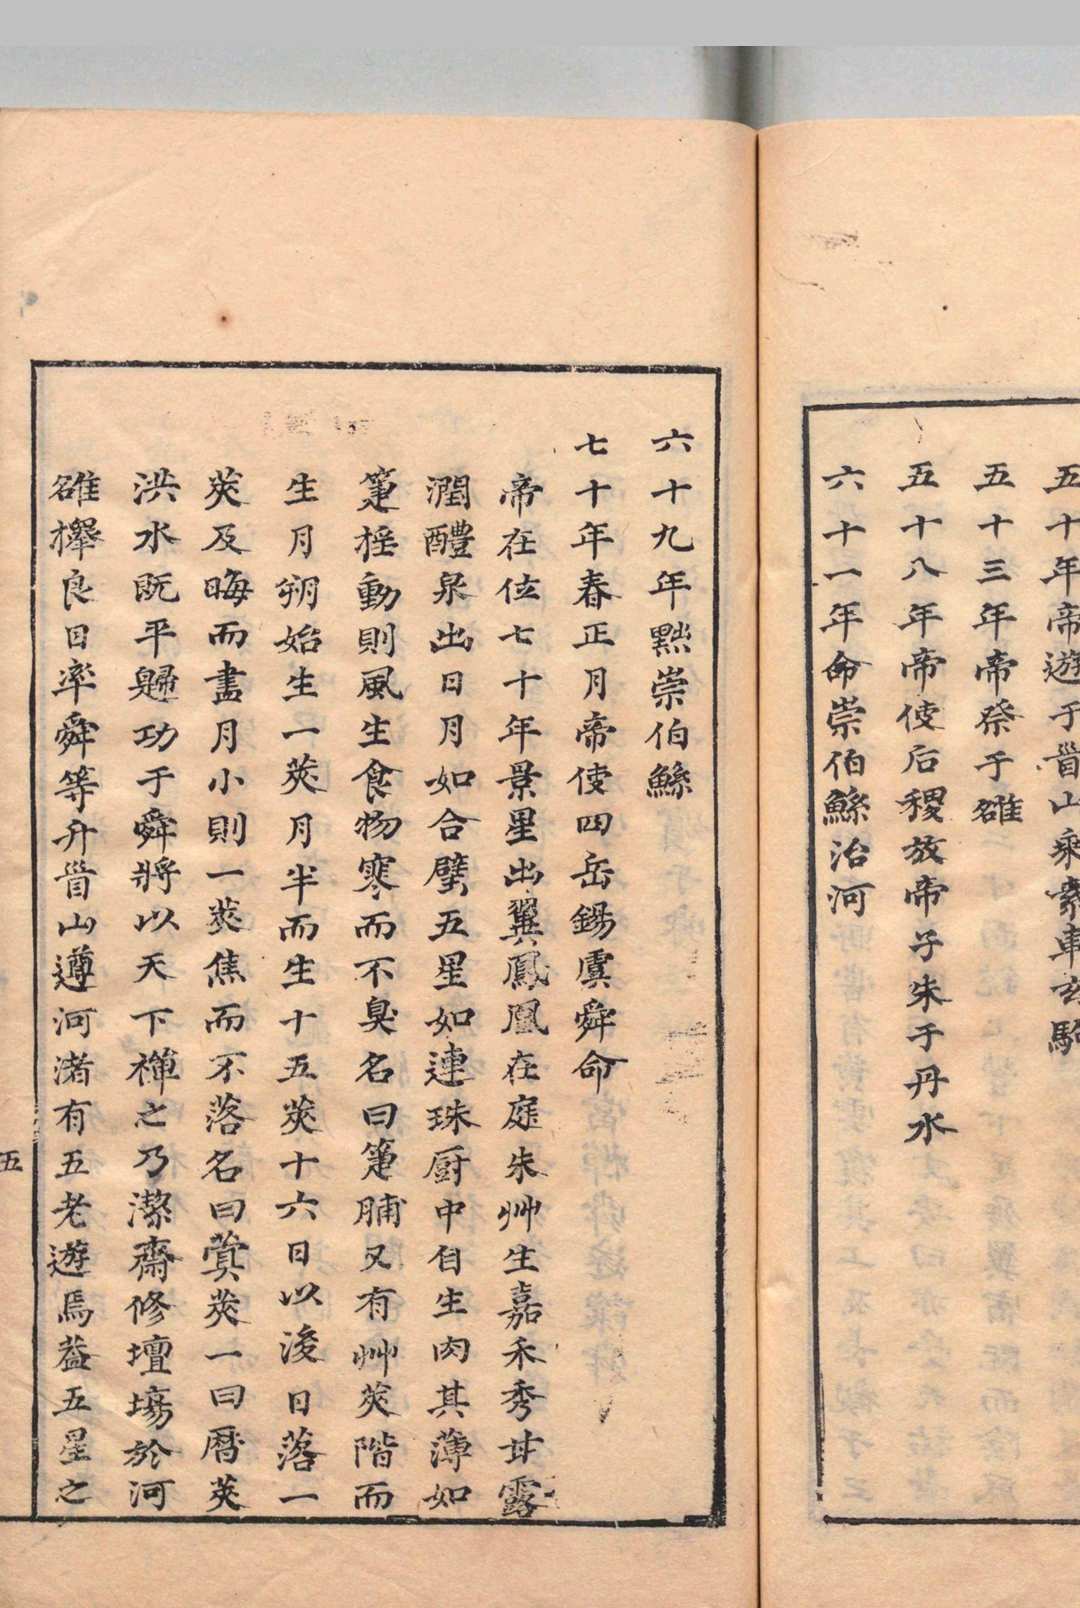 五十年帝遊于首山乘素車玄駒
五十三年帝祭于雒
五十八年帝使后稷放帝子朱于丹水
六十一年命崇伯鯀治河
六十九年黜崇伯鯀
七十年春正月帝使四岳錫虞舜命
帝在位七十年景星出翼鳳凰在庭朱艸生嘉禾秀甘露
潤醴泉出日月如合璧五星如連珠厨中自生肉其薄如
箑搖動則風生食物寒而不臭名曰箑脯又有艸莢階而
生月朔始生一莢月半而生十五莢十六日以後日落一
莢及晦而盡月小則一莢焦而不落名曰蓂莢一曰曆莢
洪水既平歸功于舜將以天下禪之乃潔齋修壇場於河
雒擇良日率舜等升首山遵河渚有五老遊焉葢五星之
五